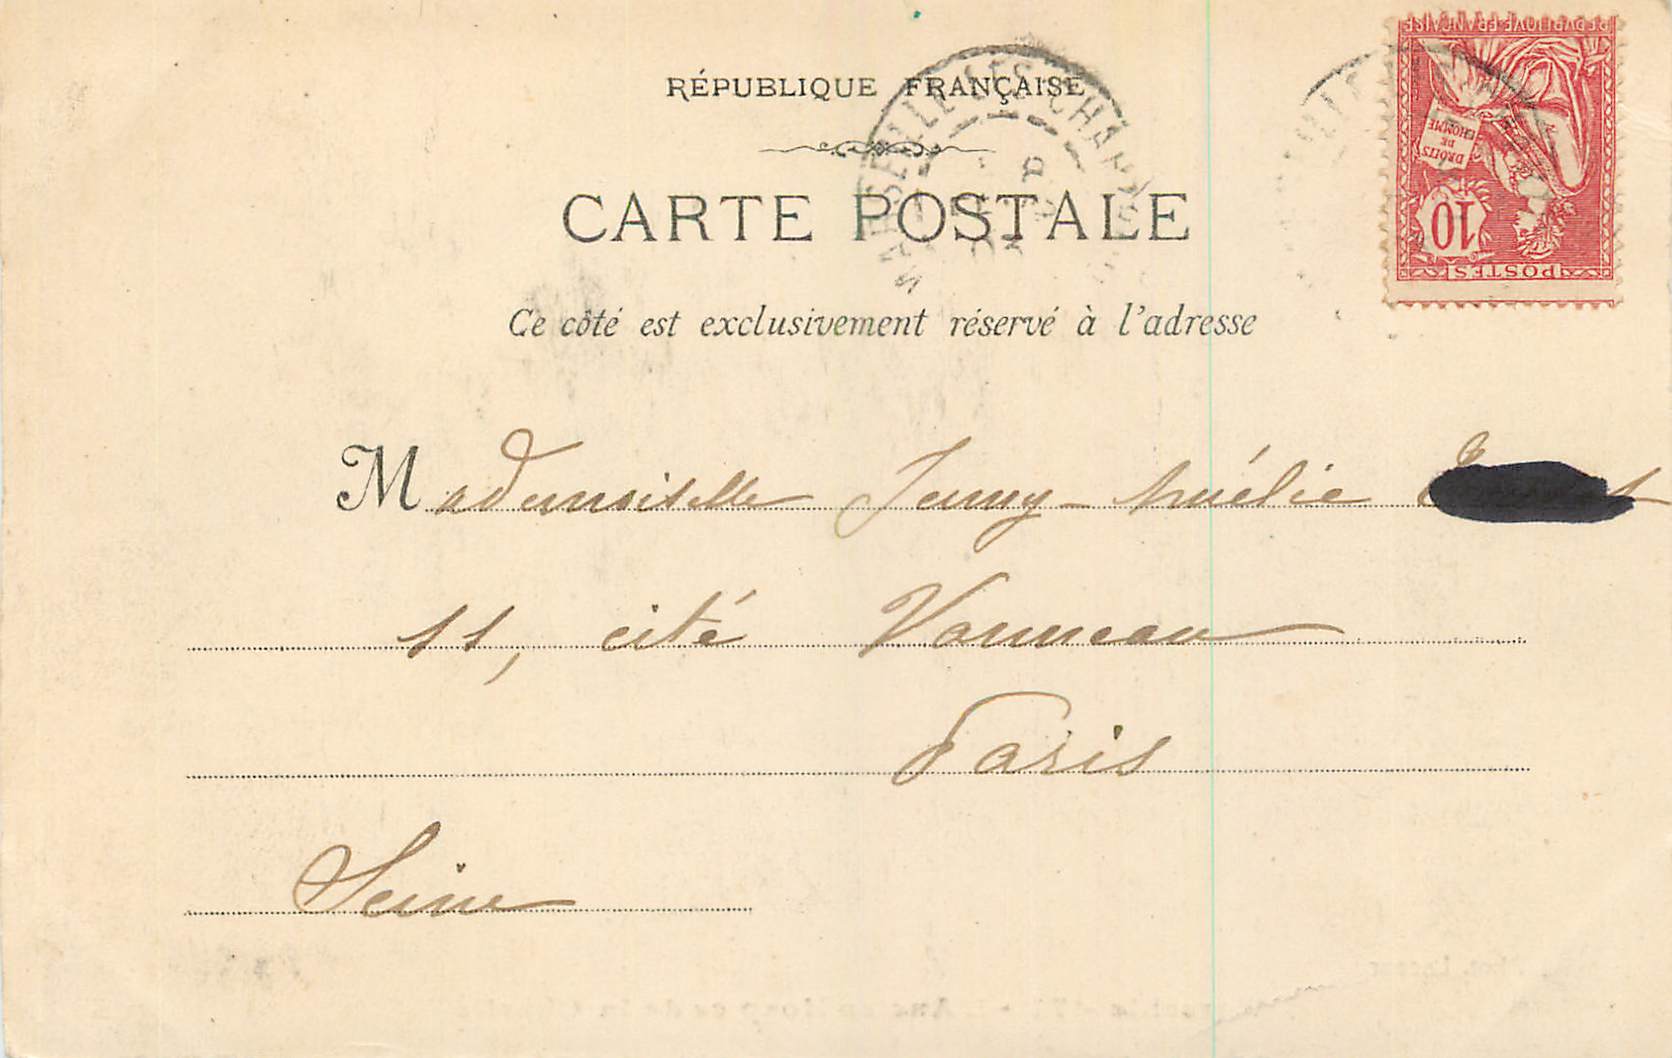 RÉPUBLIQUE FRANÇAISE
CARTE POSTALE
Ce côté est exclusivement réservé à l'adresse
Mademoiselle Jenny-Amélie
11, cité Vanneau
Paris
Seine
POSTES
10
DROITS
DE
L'HOMME
MARSEILLE